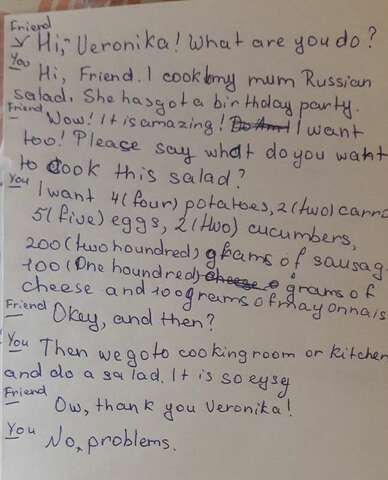 Friend
Hi, Veronika! What are you do?
You
Hi, Friend. I cook my mum Russian
salad. She has got a birthday party.
Friend Wow! It is amazing! I want
too! Please say what do you want
to cook this salad?
You I want 4(four) potatoes, 2(two) carro
5(five) eggs, 2(two) cucumbers,
200(two houndred) grams of sausag
100(One houndred) cheese grams of
cheese and 100 greams of mayonnais
Friend Okey, and then?
You Then we go to cooking room or kitchen
and do a salad. It is so eysy
Friend Ow, thank you Veronika!
You No, problems.